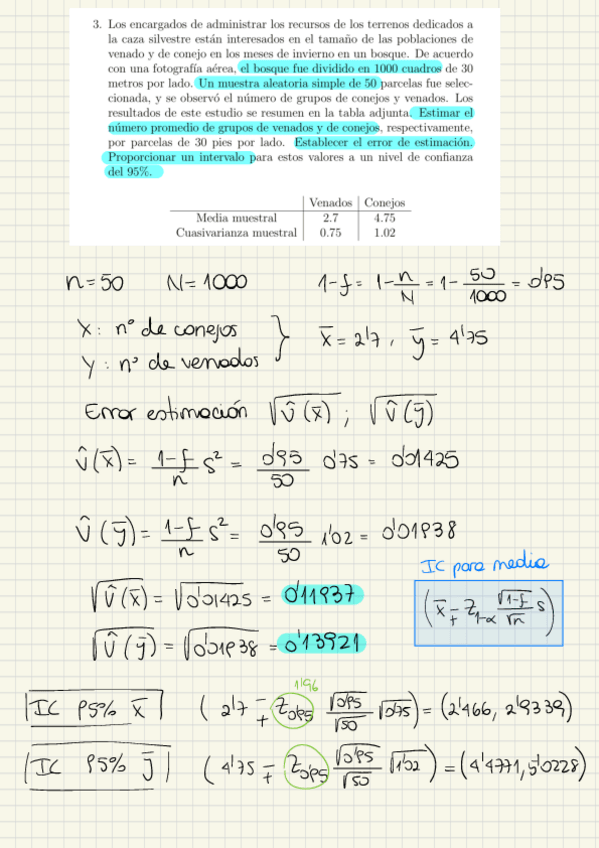 3. Los encargados de administrar los recursos de los terrenos dedicados a
la caza silvestre están interesados en el tamaño de las poblaciones de
venado y de conejo en los meses de invierno en un bosque. De acuerdo
con una fotografía aérea, el bosque fue dividido en 1000 cuadros de 30
metros por lado. Un muestra aleatoria simple de 50 parcelas fue selec-
cionada, y se observó el número de grupos de conejos y venados. Los
resultados de este estudio se resumen en la tabla adjunta. Estimar el
número promedio de grupos de venados y de conejos, respectivamente,
por parcelas de 30 pies por lado. Establecer el error de estimación.
Proporcionar un intervalo para estos valores a un nivel de confianza
del 95%.
Venados Conejos
Media muestral 2.7 4.75
Cuasivarianza muestral 0.75 1.02
n=50 N=1000 1-f = 1-n/N = 1-50/1000 = 0'95
X: nº de conejos
Y: nº de venados } x̄ = 2'7, ȳ = 4'75
Error estimación √V̂(x̄) ; √V̂(ȳ)
V̂(x̄) = (1-f)/n s² = 0'95/50 0'75 = 0'01425
V̂(ȳ) = (1-f)/n s² = 0'95/50 1'02 = 0'01938
IC para media
√V̂(x̄) = √0'01425 = 0'11937
(x̄ ∓ Z1-α √1-f/√n s)
√V̂(ȳ) = √0'01938 = 0'13921
1'96
IC 95% x̄ (2'7 ∓ Z0'95 √0'95/√50 √0'75) = (2'466, 2'9339)
IC 95% ȳ (4'75 ∓ Z0'95 √0'95/√50 √1'02) = (4'4771, 5'0228)